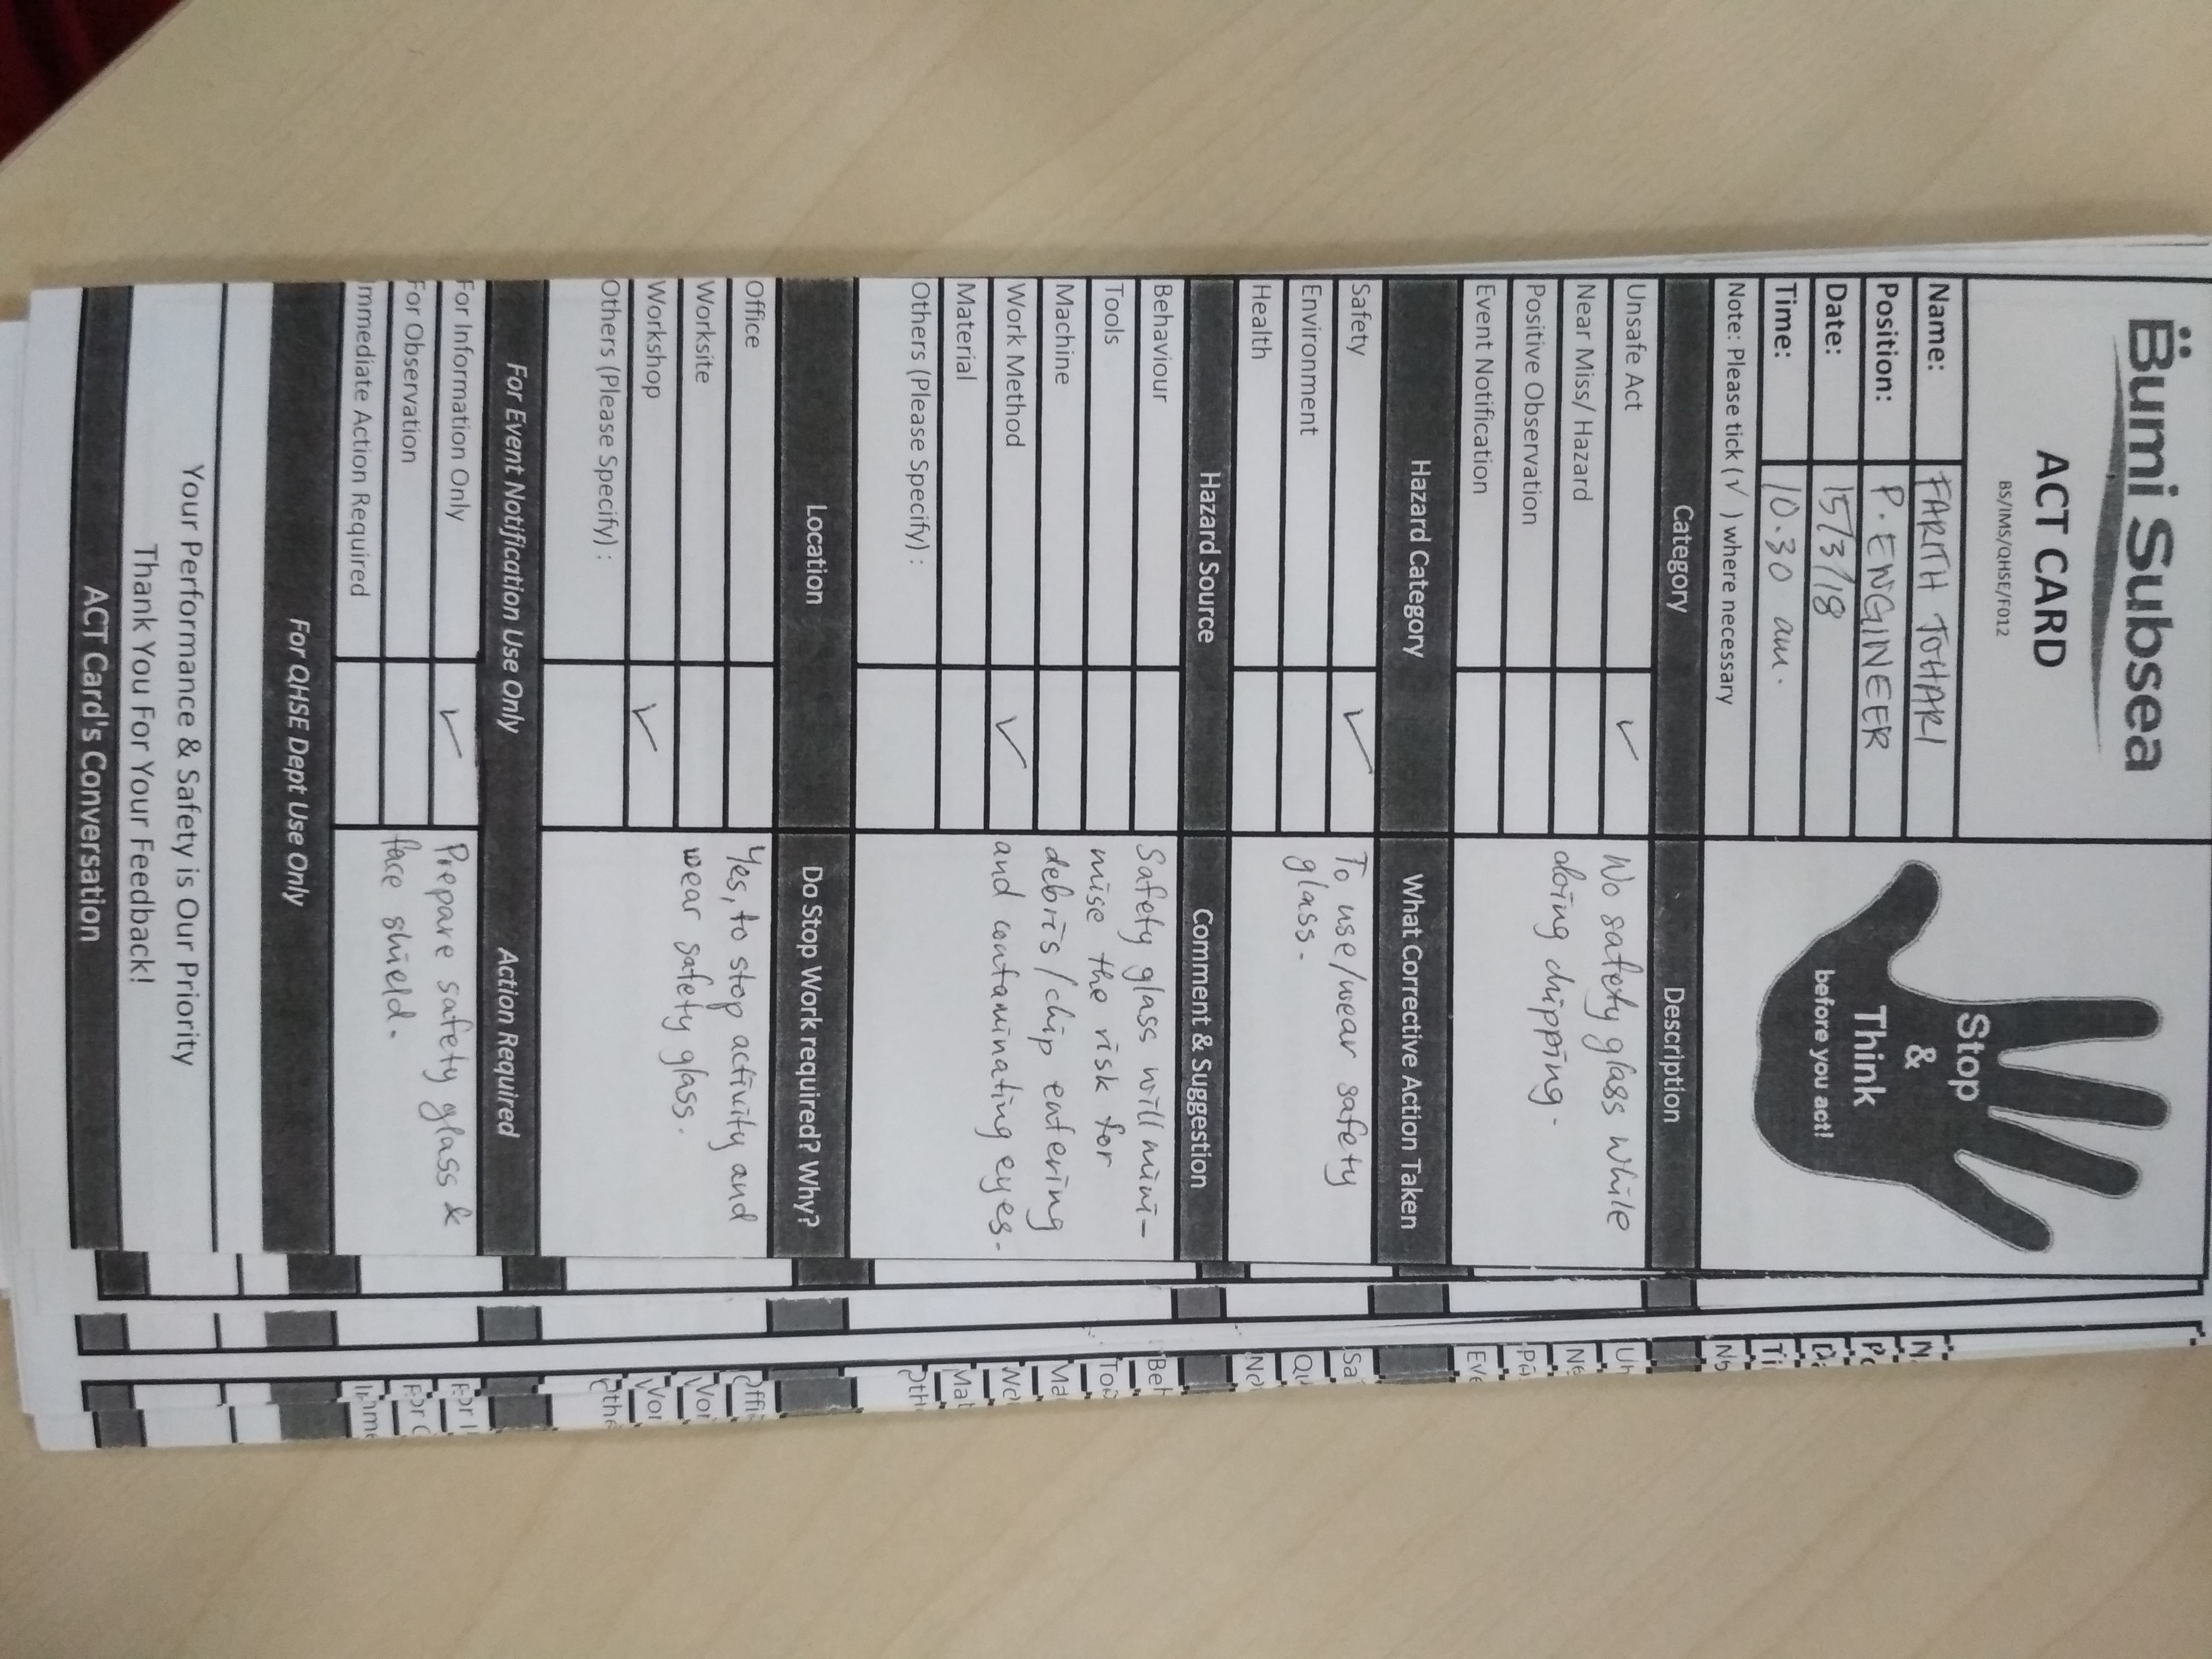 Bumi Subsea
ACT CARD
BS/IMS/QHSE/F012
Name: FARITH TOHARI
Position: P. ENGINEER
Date: 15/3/18
Time: 10.30 am.
Note: Please tick (√ ) where necessary
Stop
&
Think
before you act!
Category Description
Unsafe Act ✓ No safety glass while
Near Miss/ Hazard doing chipping.
Positive Observation
Event Notification
Hazard Category What Corrective Action Taken
Safety ✓ To use/wear safety
Environment glass.
Health
Hazard Source Comment & Suggestion
Behaviour Safety glass will mini-
Tools mise the risk for
Machine debris/chip entering
Work Method ✓ and contaminating eyes.
Material
Others (Please Specify) :
Location Do Stop Work required? Why?
Office Yes, to stop activity and
Worksite wear safety glass.
Workshop ✓
Others (Please Specify) :
For Event Notification Use Only Action Required
For Information Only ✓ Prepare safety glass &
For Observation face shield.
Immediate Action Required
For QHSE Dept Use Only
Your Performance & Safety is Our Priority
Thank You For Your Feedback!
ACT Card's Conversation